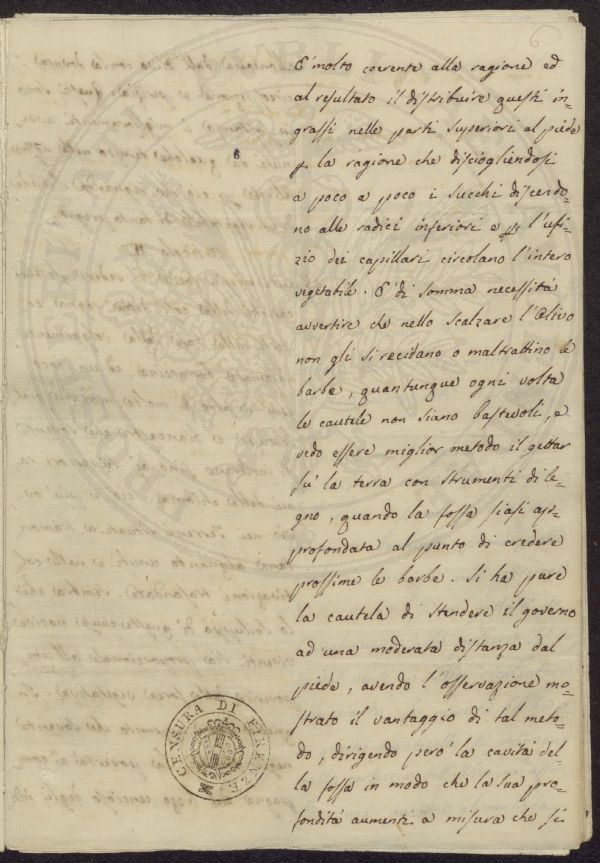 6
È molto coerente alla ragione ed
al resultato il distribuire questi in=
grassi nelle parti superiori al piede
p la ragione che disciogliendosi
a poco a poco i succhi discendo=
no alle radici inferiori e p l'ufi=
zio dei capillari circolano l'intero
vegetabile. È di somma necessità
avvertire che nello scalzare l'Olivo
non gli si recidano o maltrattino le
barbe, quantunque ogni volta
le cautele non siano bastevoli, e
vedo essere miglior metodo il gettar
sù la terra con strumenti di le=
gno, quando la fossa siasi ap=
profondata al punto di credere
prossime le barbe. Si ha pure
la cautela di stendere il governo
ad una moderata distanza dal
piede, avendo l'osservazione mo=
strato il vantaggio di tal meto=
do, dirigendo però la cavità del=
la fossa in modo che la sua pro=
fondità aumenti a misura che si
CENSURA DI FIRENZE